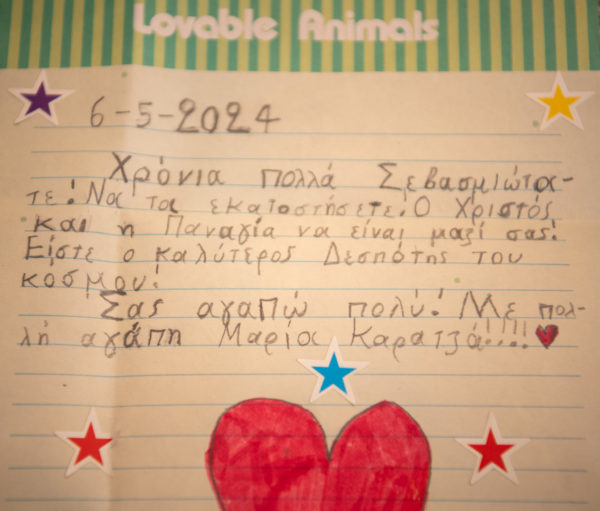 Lovable Animals
6-5-2024
Χρόνια πολλά Σεβασμιώτα-
τε! Να τα εκατοστήσετε! Ο Χριστός
και η Παναγία να είναι μαζί σας!
Είστε ο καλύτερος Δεσπότης του
κόσμου!
Σας αγαπώ πολύ! Με πολ-
λή αγάπη Μαρία Καρατζά!!!!!